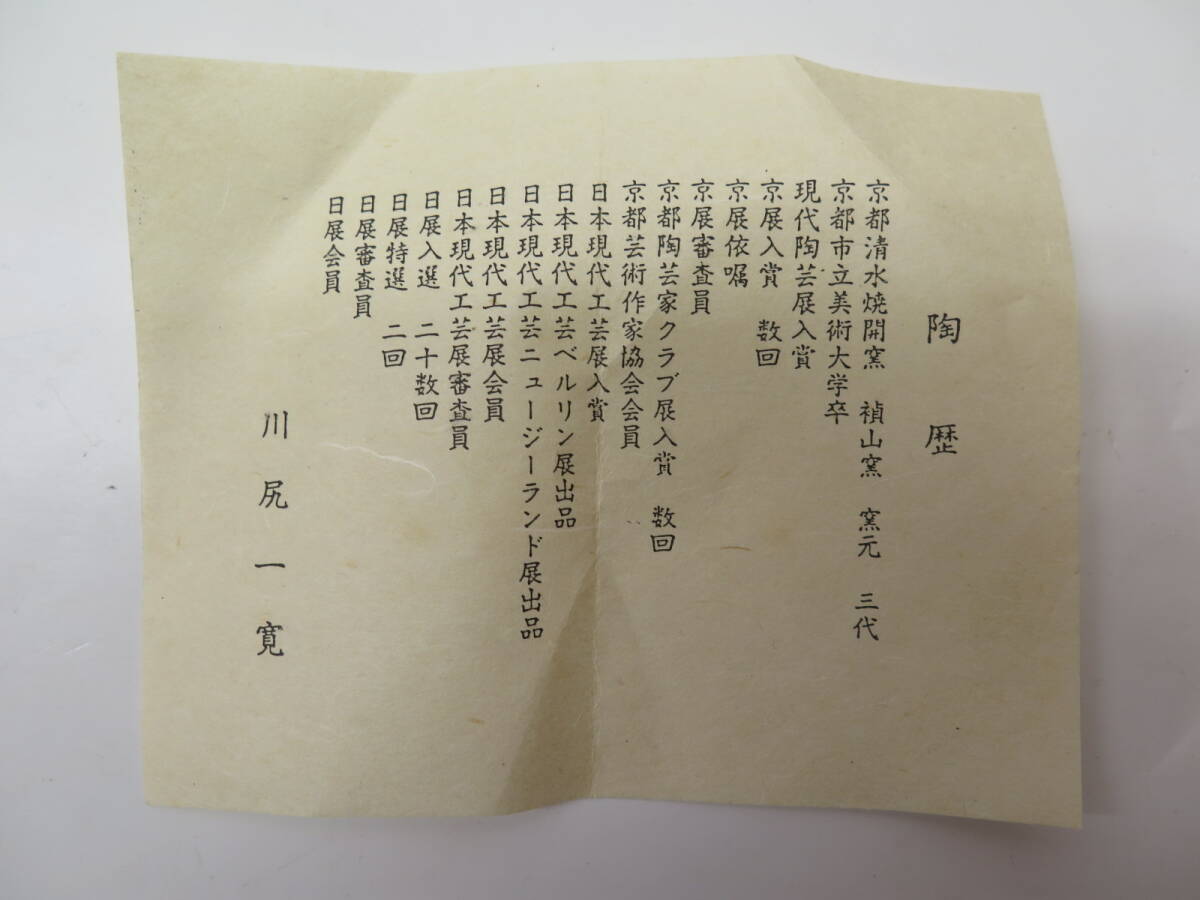 陶歴
京都清水焼開窯　禎山窯　窯元　三代
京都市立美術大学卒
現代陶芸展入賞
京展入賞　数回
京展依嘱
京展審査員
京都陶芸家クラブ展入賞　数回
京都芸術作家協会会員
日本現代工芸展入賞
日本現代工芸ベルリン展出品
日本現代工芸ニュージーランド展出品
日本現代工芸展会員
日本現代工芸展審査員
日展入選　二十数回
日展特選　二回
日展審査員
日展会員
川尻一寛